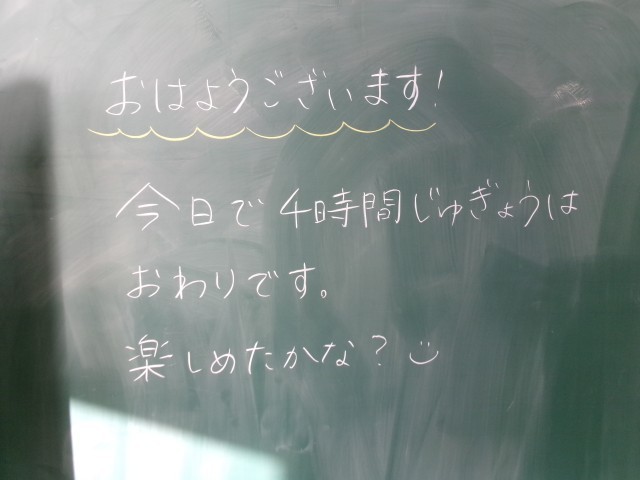 おはようございます!
今日で4時間じゅぎょうは
おわりです。
楽しめたかな?